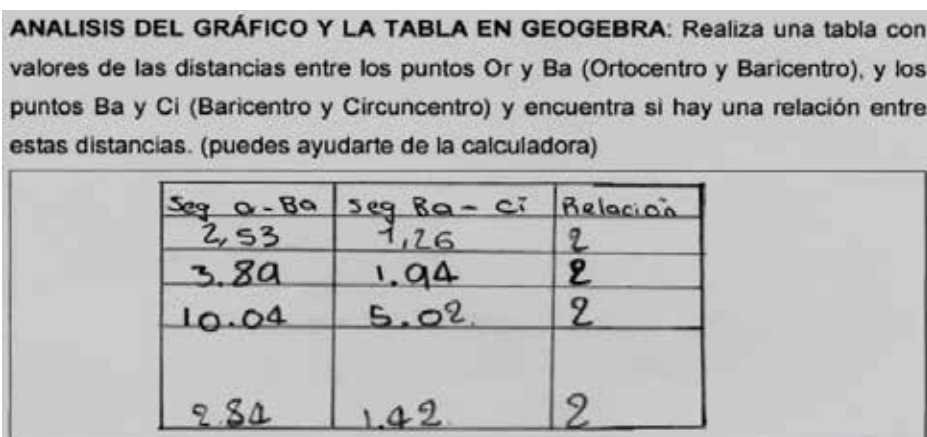 ANALISIS DEL GRÁFICO Y LA TABLA EN GEOGEBRA: Realiza una tabla con
valores de las distancias entre los puntos Or y Ba (Ortocentro y Baricentro), y los
puntos Ba y Ci (Baricentro y Circuncentro) y encuentra si hay una relación entre
estas distancias. (puedes ayudarte de la calculadora)
Seg Or-Ba Seg Ba - Ci Relación
2,53 1,26 2
3.89 1.94 2
10.04 5.02. 2
2.84 1.42. 2